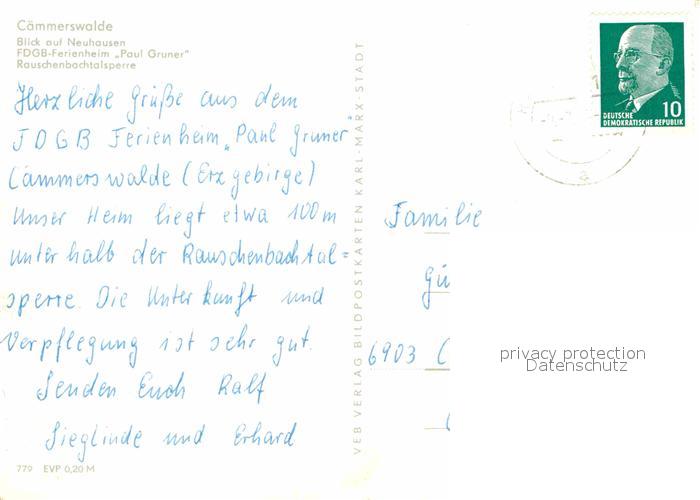 Cämmerswalde
Blick auf Neuhausen
FDGB-Ferienheim „Paul Gruner"
Rauschenbachtalsperre
Herzliche Grüße aus dem
FDGB Ferienheim „Paul Gruner"
Cämmerswalde (Erzgebirge)
Unser Heim liegt etwa 100m
unterhalb der Rauschenbachtal=
sperre. Die Unterkunft und
Verpflegung ist sehr gut.
Senden Euch Ralf
Sieglinde und Erhard
779 EVP 0,20 M
VEB VERLAG BILDPOSTKARTEN KARL-MARX-STADT
10
DEUTSCHE
DEMOKRATISCHE REPUBLIK
a
Familie
Gü
6903
privacy protection
Datenschutz